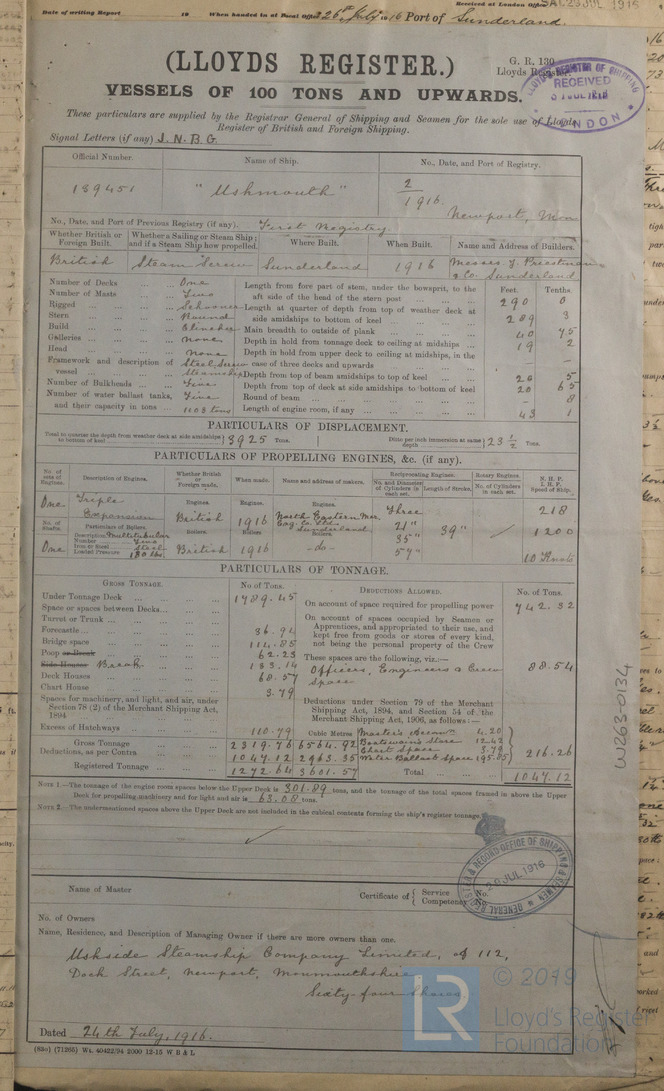 Date of writing Report 19 When handed in at Local Office 26th July 1916 Port of Sunderland.
Received at London Office SAT. 29 JUL 1916
(LLOYDS REGISTER.)
G. R. 130
Lloyds Register
LLOYD'S REGISTER OF SHIPPING
RECEIVED
LONDON
VESSELS OF 100 TONS AND UPWARDS.
These particulars are supplied by the Registrar General of Shipping and Seamen for the sole use of Lloyds
Register of British and Foreign Shipping.
Signal Letters (if any) J. N. B. G.
Official Number. Name of Ship. No., Date, and Port of Registry.
139451 "Uskmouth" 2
1916.
Newport, Mon
No., Date, and Port of Previous Registry (if any). First Registry
Whether British or Foreign Built. Whether a Sailing or Steam Ship; and if a Steam Ship how propelled. Where Built. When Built. Name and Address of Builders.
British Steam Screw Sunderland 1916 Messrs J. Priestman
& Co. Sunderland
Feet. Tenths.
Number of Decks One Length from fore part of stem, under the bowsprit, to the
Number of Masts Two aft side of the head of the stern post 290 0
Rigged Schooner Length at quarter of depth from top of weather deck at
Stern Round side amidships to bottom of keel 289 3
Build Clincher Main breadth to outside of plank 40 75
Galleries none Depth in hold from tonnage deck to ceiling at midships 19 2
Head none Depth in hold from upper deck to ceiling at midships, in the
Framework and description of vessel Steel, Screw Steamship case of three decks and upwards –
Depth from top of beam amidships to top of keel 20 5
Number of Bulkheads Five Depth from top of deck at side amidships to bottom of keel 20 65
Number of water ballast tanks, Five Round of beam – 8
and their capacity in tons 1103 tons Length of engine room, if any 43 1
PARTICULARS OF DISPLACEMENT.
Total to quarter the depth from weather deck at side amidships to bottom of keel 3925 Tons. Ditto per inch immersion at same depth 23 ½ Tons.
PARTICULARS OF PROPELLING ENGINES, &c. (if any).
No. of sets of Engines. Description of Engines. Whether British or Foreign made. When made. Name and address of makers. Reciprocating Engines. Rotary Engines. N.H.P. I.H.P. Speed of Ship.
No. and Diameter of Cylinders in each set. Length of Stroke. No. of Cylinders in each set.
One Triple Engines. Engines. Engines. Three 218
Expansion British 1916 North Eastern Mar.
Eng. Co. Ltd. Sunderland 21" 39" 1200
No. of Shafts. Particulars of Boilers. Boilers. Boilers. Boilers. 35"
One Description Multitubular
Number Two
Iron or Steel Steel
Loaded Pressure 180 lbs. British 1916 –do– 57" 10 Knots
PARTICULARS OF TONNAGE.
GROSS TONNAGE. No. of Tons. DEDUCTIONS ALLOWED. No. of Tons.
Under Tonnage Deck 1789.45 On account of space required for propelling power 742.32
Space or spaces between Decks On account of spaces occupied by Seamen or
Turret or Trunk Apprentices, and appropriated to their use, and
Forecastle 36.94 kept free from goods or stores of every kind,
Bridge space 114.85 not being the personal property of the Crew
Poop or Break 62.23 These spaces are the following, viz.:—
Side Houses Break 133.14 Officers, Engineers & Crew 88.54
Deck Houses 68.57 Space
Chart House 3.79
Spaces for machinery, and light, and air, under Deductions under Section 79 of the Merchant
Section 78 (2) of the Merchant Shipping Act, Shipping Act, 1894, and Section 54 of the
1894 Merchant Shipping Act, 1906, as follows:—
Excess of Hatchways 110.79 Cubic Metres Master's Accom. 4.20
Gross Tonnage 2319.76 6564.92 Boatswain's Store 12.42
Deductions, as per Contra 1047.12 2963.35 Chart Space 3.79 216.26
Water Ballast Space 195.85
Registered Tonnage 1272.64 3601.57 Total 1047.12
NOTE 1.—The tonnage of the engine room spaces below the Upper Deck is 301.89 tons, and the tonnage of the total spaces framed in above the Upper
Deck for propelling machinery and for light and air is 63.08 tons.
NOTE 2.—The undermentioned spaces above the Upper Deck are not included in the cubical contents forming the ship's register tonnage.
REGISTER & RECORD OFFICE OF SHIPPING & SEAMEN
28 JUL 1916
GENERAL
Name of Master Certificate of { Service No.
Competency No.
No. of Owners
Name, Residence, and Description of Managing Owner if there are more owners than one.
Uskside Steamship Company Limited, of 112,
Dock Street, Newport, Monmouthshire
Sixty-four Shares
Dated 24th July, 1916.
(83o) (71265) Wt. 40422/94 2000 12-15 W B & L
W263-0134
LR
© 2019
Lloyd's Register
Foundation